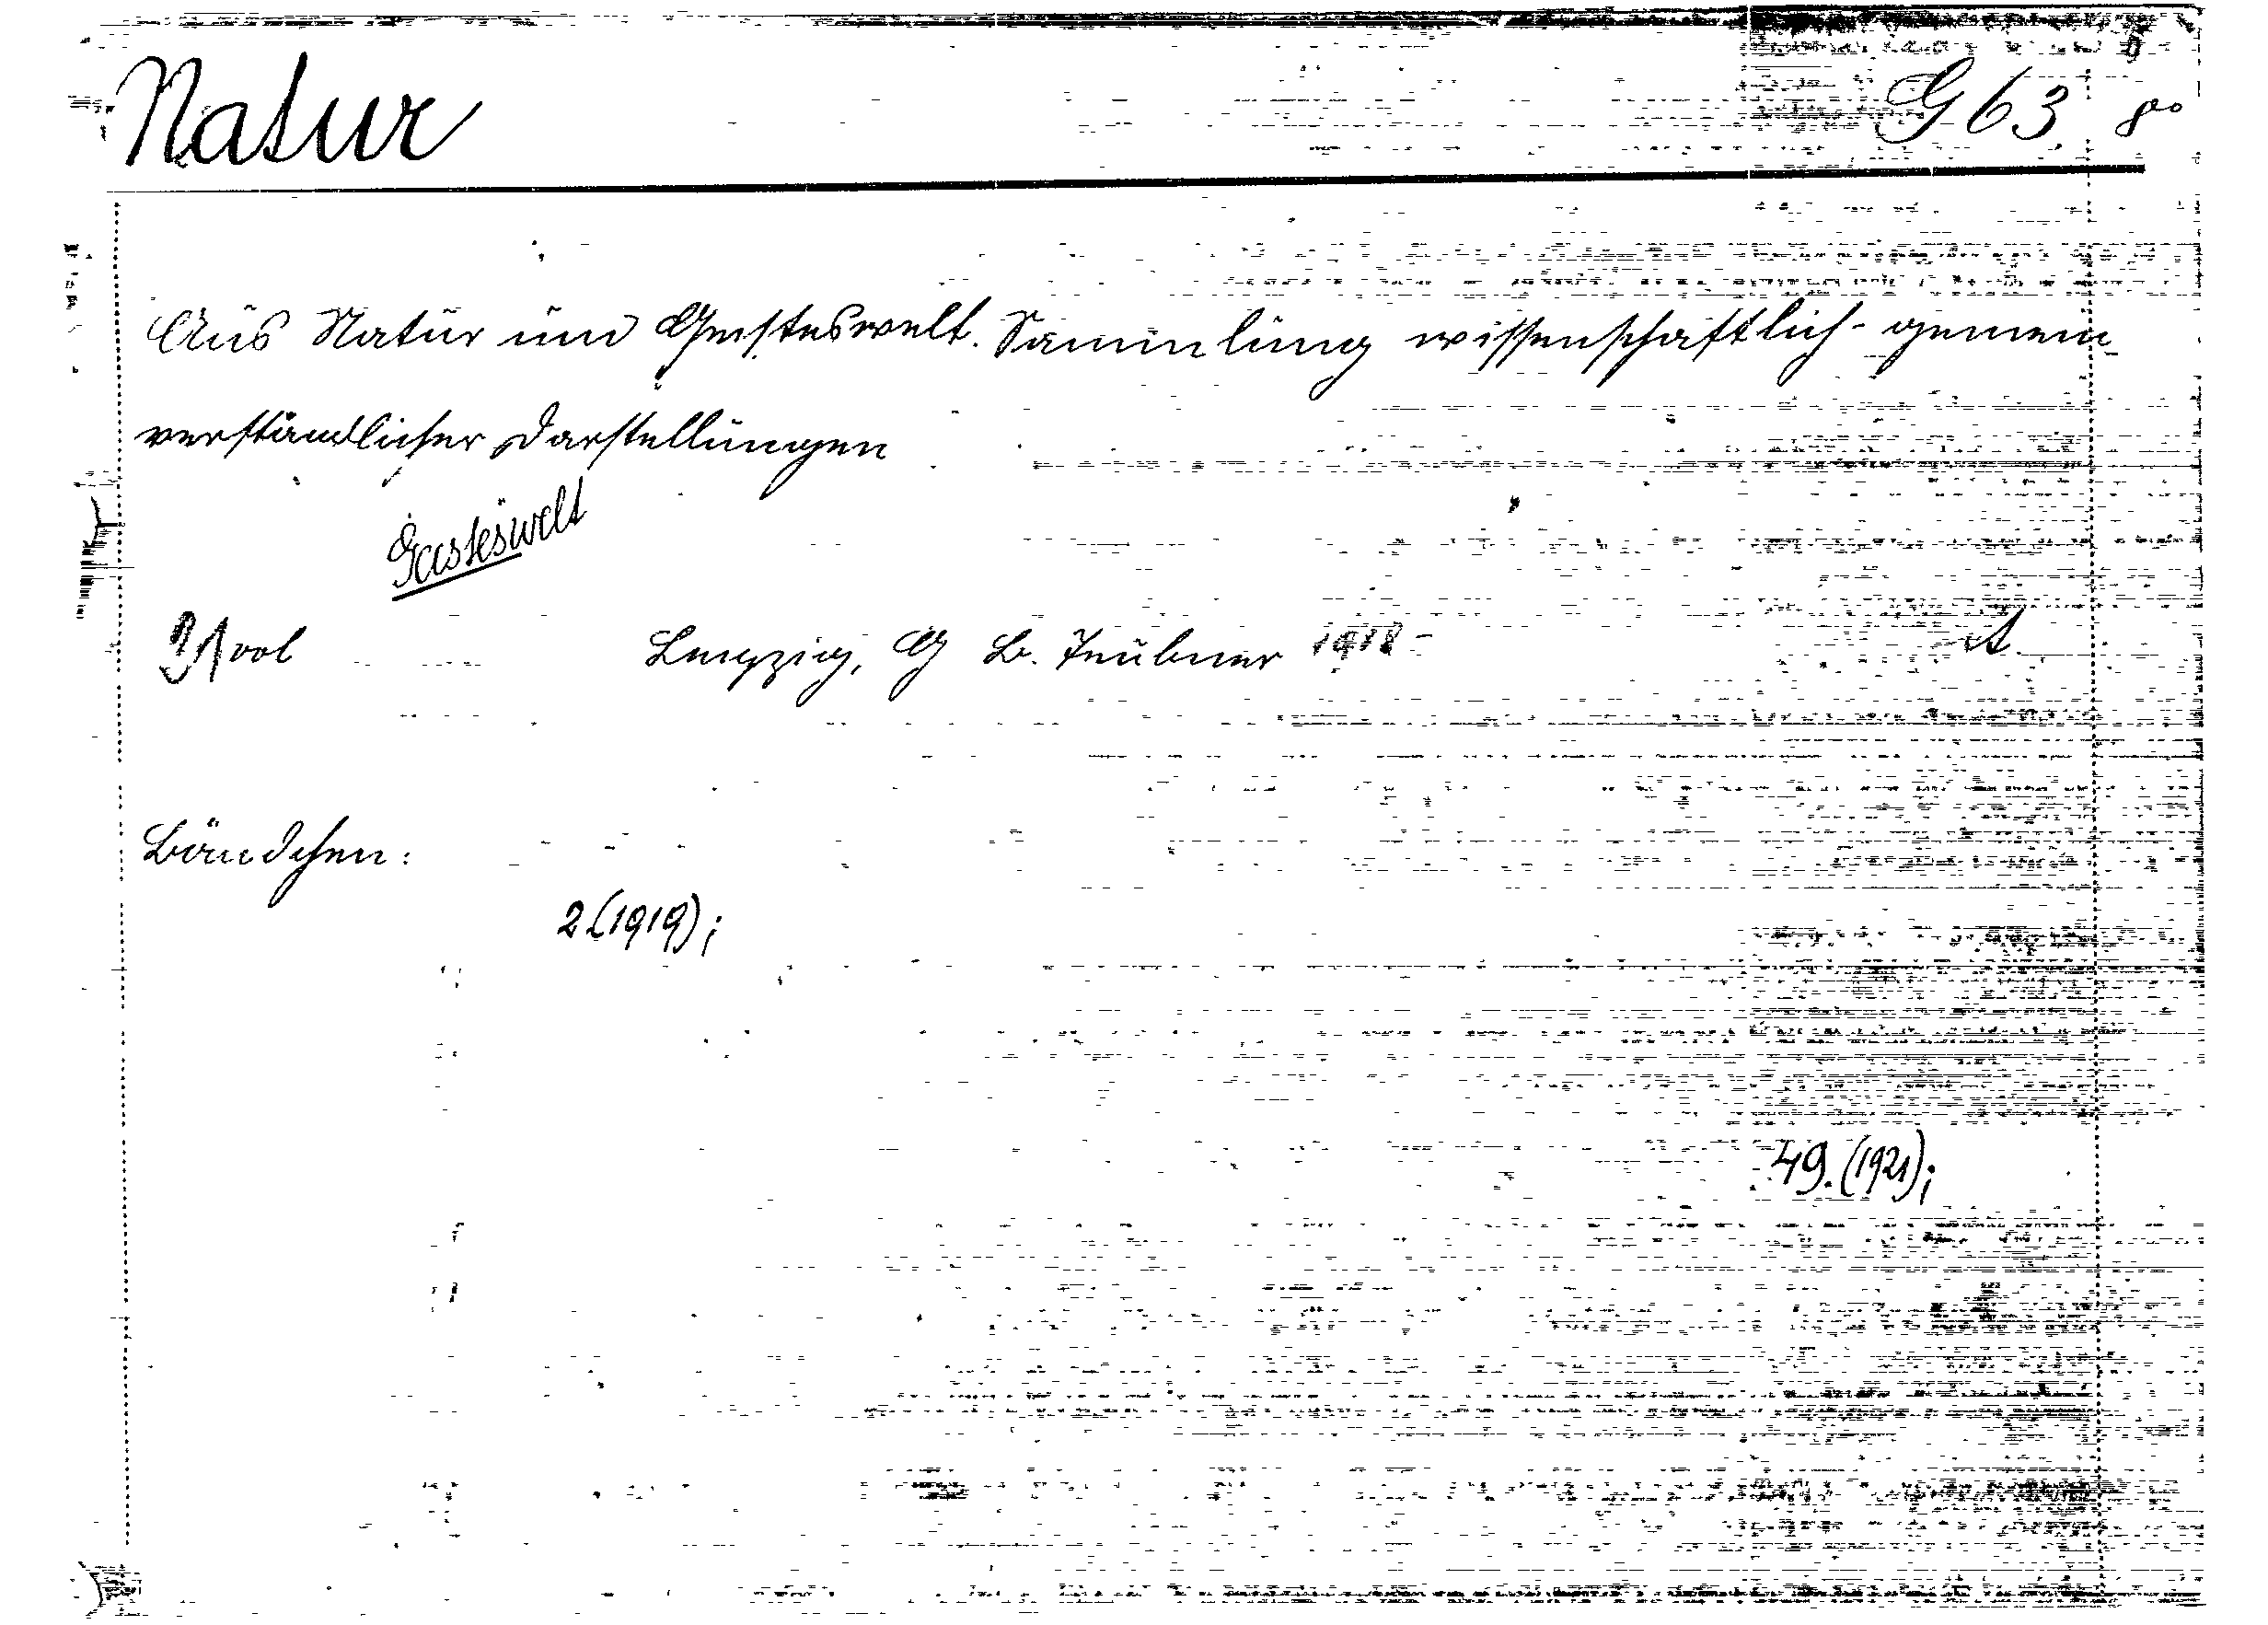 Natur G 63 8°
Aus Natur und Geisteswelt. Sammlung wissenschaftlich-gemein
verständlicher Darstellungen
Geisteswelt
vol Leipzig, B. Teubner 1918-
Bändchen:
2 (1919);
49. (1921);